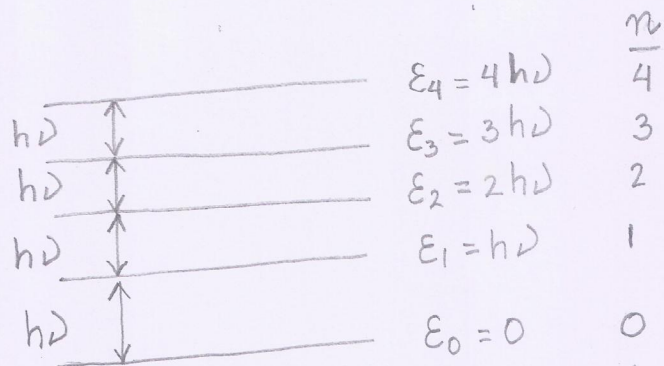 n
ε₄ = 4hν 4
hν
ε₃ = 3hν 3
hν
ε₂ = 2hν 2
hν
ε₁ = hν 1
hν
ε₀ = 0 0